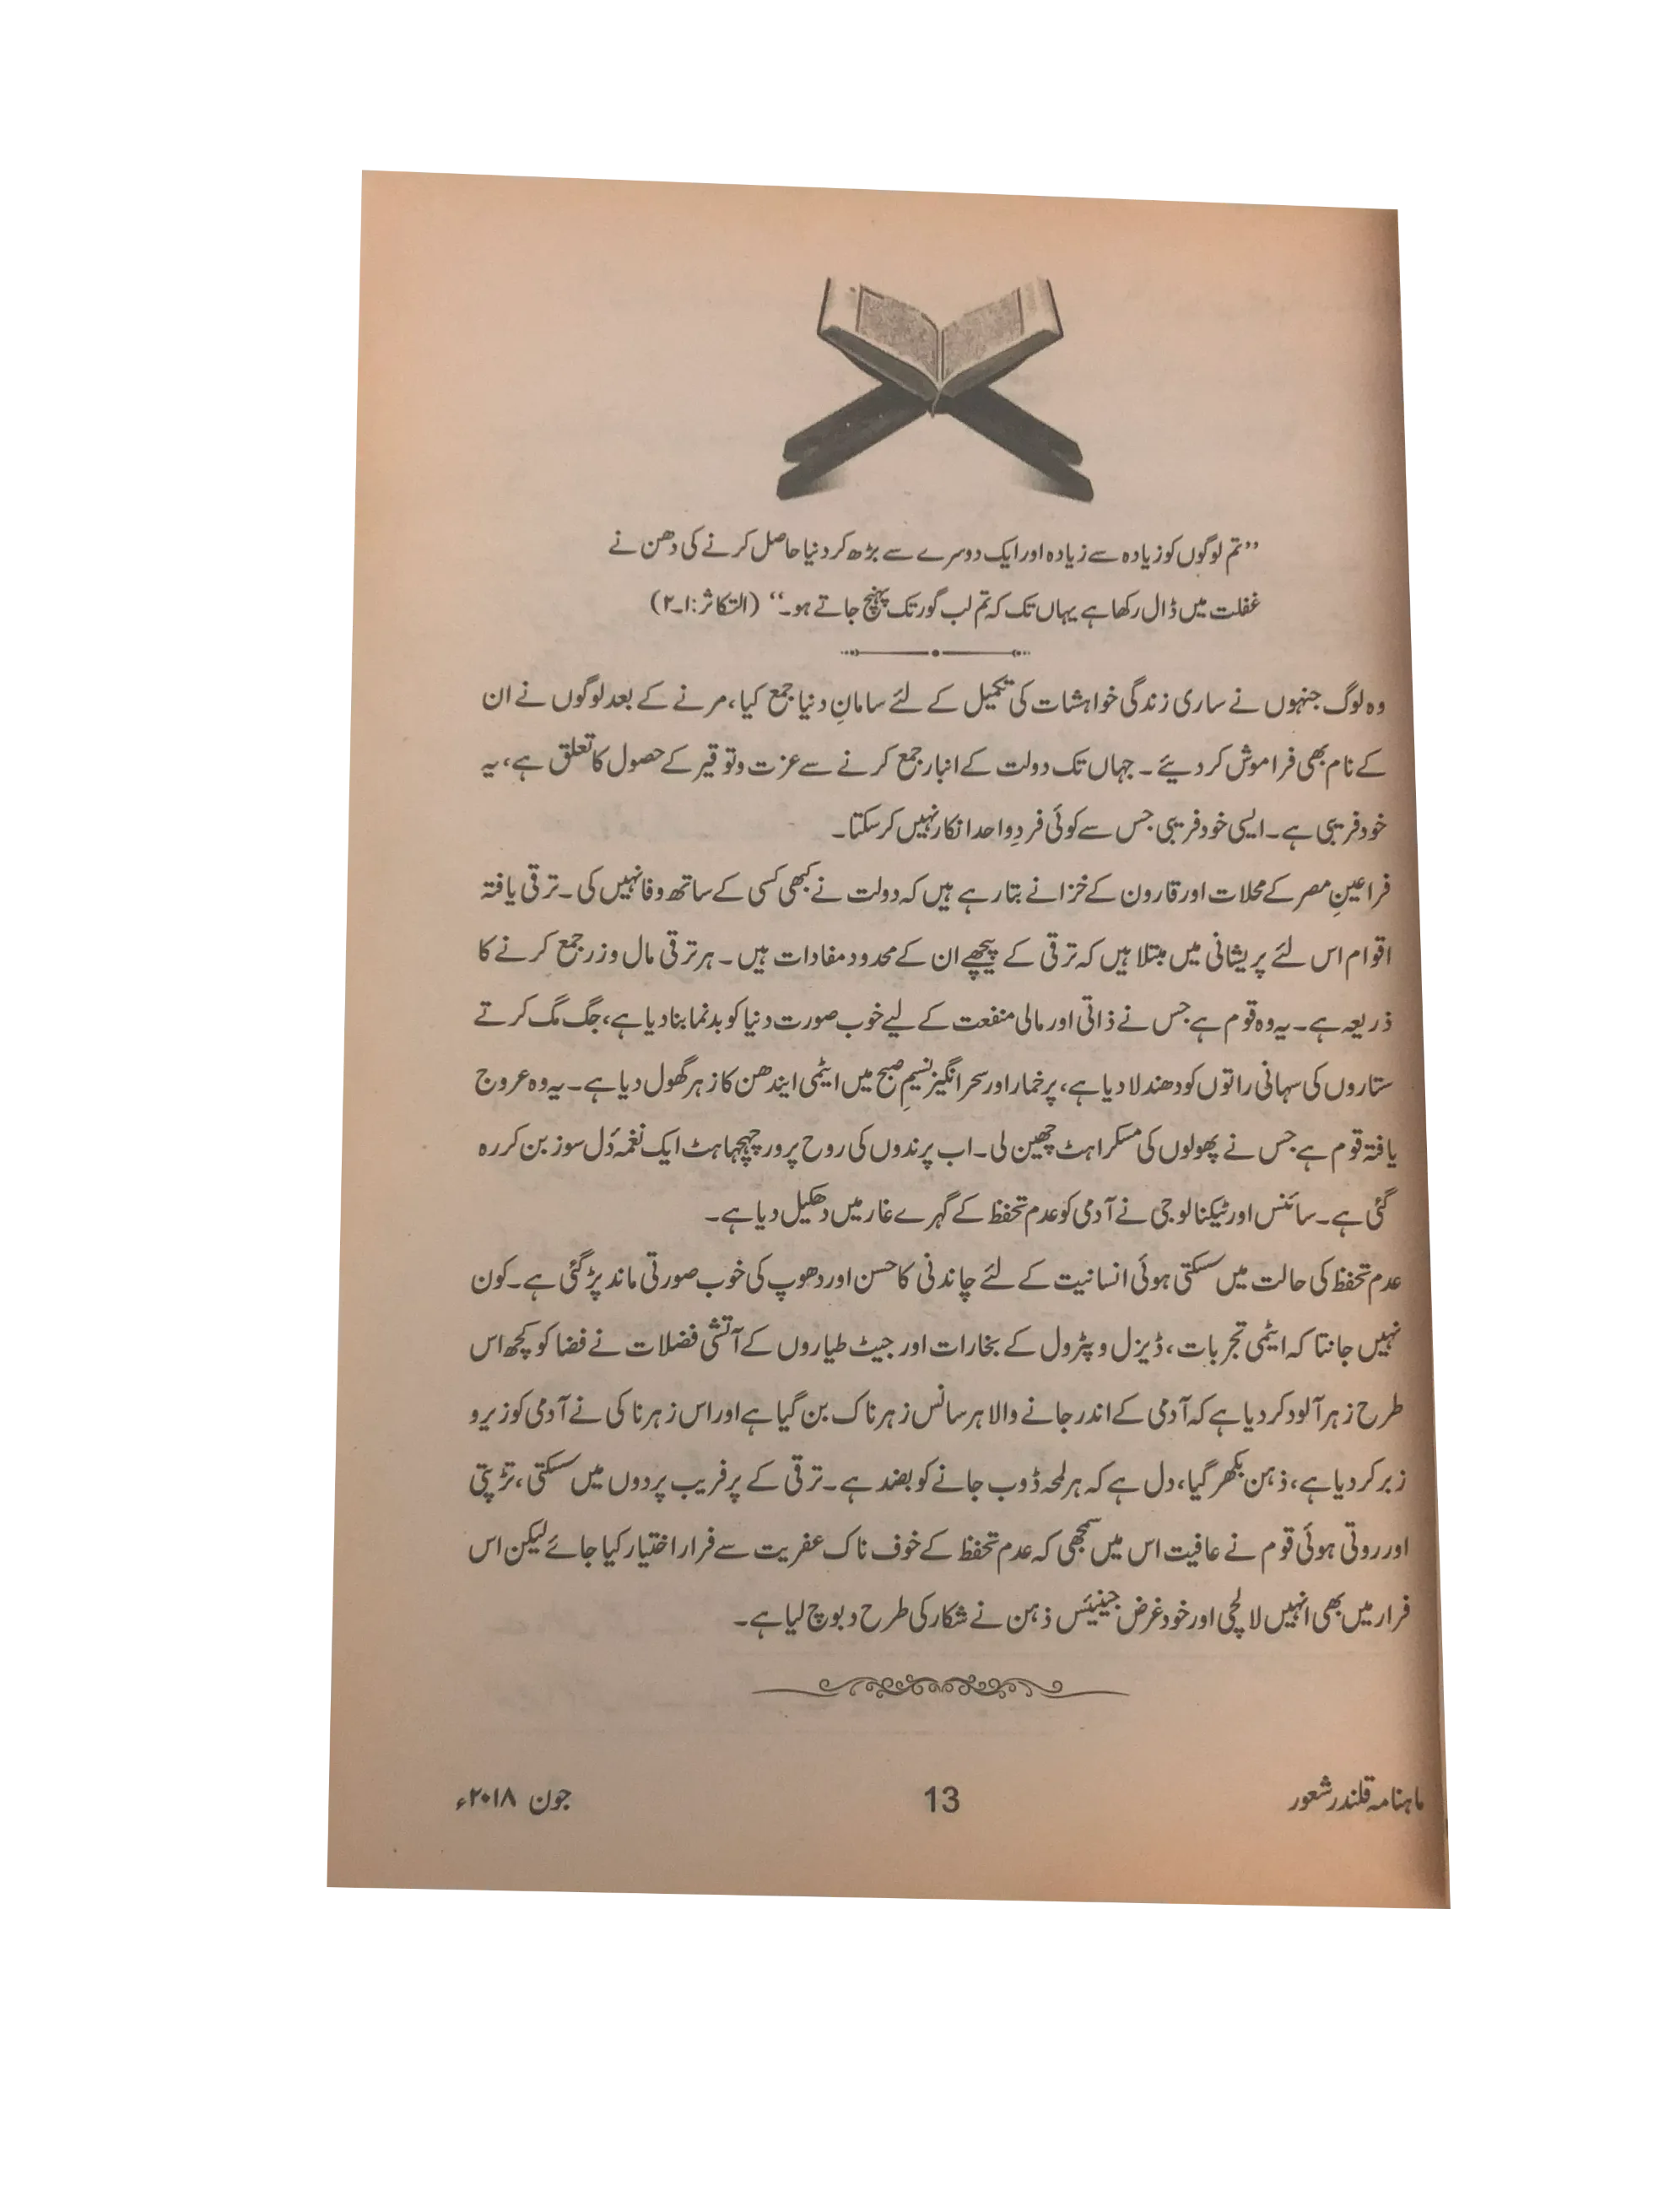 ”تم لوگوں کو زیادہ سے زیادہ اور ایک دوسرے سے بڑھ کر دنیا حاصل کرنے کی دھن نے
غفلت میں ڈال رکھا ہے یہاں تک کہ تم لب گور تک پہنچ جاتے ہو۔“ (التکاثر:۱۔۲)
وہ لوگ جنہوں نے ساری زندگی خواہشات کی تکمیل کے لئے سامانِ دنیا جمع کیا، مرنے کے بعد لوگوں نے ان
کے نام بھی فراموش کر دیئے ۔ جہاں تک دولت کے انبار جمع کرنے سے عزت و توقیر کے حصول کا تعلق ہے، یہ
خود فریبی ہے۔ ایسی خود فریبی جس سے کوئی فردِ واحد انکار نہیں کر سکتا۔
فراعینِ مصر کے محلات اور قارون کے خزانے بتا رہے ہیں کہ دولت نے کبھی کسی کے ساتھ وفا نہیں کی ۔ ترقی یافتہ
اقوام اس لئے پریشانی میں مبتلا ہیں کہ ترقی کے پیچھے ان کے محدود مفادات ہیں ۔ ہر ترقی مال و زر جمع کرنے کا
ذریعہ ہے۔ یہ وہ قوم ہے جس نے ذاتی اور مالی منفعت کے لیے خوب صورت دنیا کو بدنما بنا دیا ہے، جگ مگ کرتے
ستاروں کی سہانی راتوں کو دھندلا دیا ہے، پرخمار اور سحر انگیز نسیمِ صبح میں ایٹمی ایندھن کا زہر گھول دیا ہے۔ یہ وہ عروج
یافتہ قوم ہے جس نے پھولوں کی مسکراہٹ چھین لی۔ اب پرندوں کی روح پرور چہچہاہٹ ایک نغمۂ دل سوز بن کر رہ
گئی ہے۔ سائنس اور ٹیکنالوجی نے آدمی کو عدم تحفظ کے گہرے غار میں دھکیل دیا ہے۔
عدم تحفظ کی حالت میں سسکتی ہوئی انسانیت کے لئے چاندنی کا حسن اور دھوپ کی خوب صورتی ماند پڑ گئی ہے۔ کون
نہیں جانتا کہ ایٹمی تجربات، ڈیزل و پٹرول کے بخارات اور جیٹ طیاروں کے آتشی فضلات نے فضا کو کچھ اس
طرح زہر آلود کر دیا ہے کہ آدمی کے اندر جانے والا ہر سانس زہرناک بن گیا ہے اور اس زہرناکی نے آدمی کو زیر و
زبر کر دیا ہے، ذہن بکھر گیا، دل ہے کہ ہر لمحہ ڈوب جانے کو بضد ہے۔ ترقی کے پر فریب پردوں میں سسکتی، تڑپتی
اور روتی ہوئی قوم نے عافیت اس میں سمجھی کہ عدم تحفظ کے خوف ناک عفریت سے فرار اختیار کیا جائے لیکن اس
فرار میں بھی انہیں لالچی اور خود غرض جینیئس ذہن نے شکار کی طرح دبوچ لیا ہے۔
ماہنامہ قلندر شعور 13 جون ۲۰۱۸ء